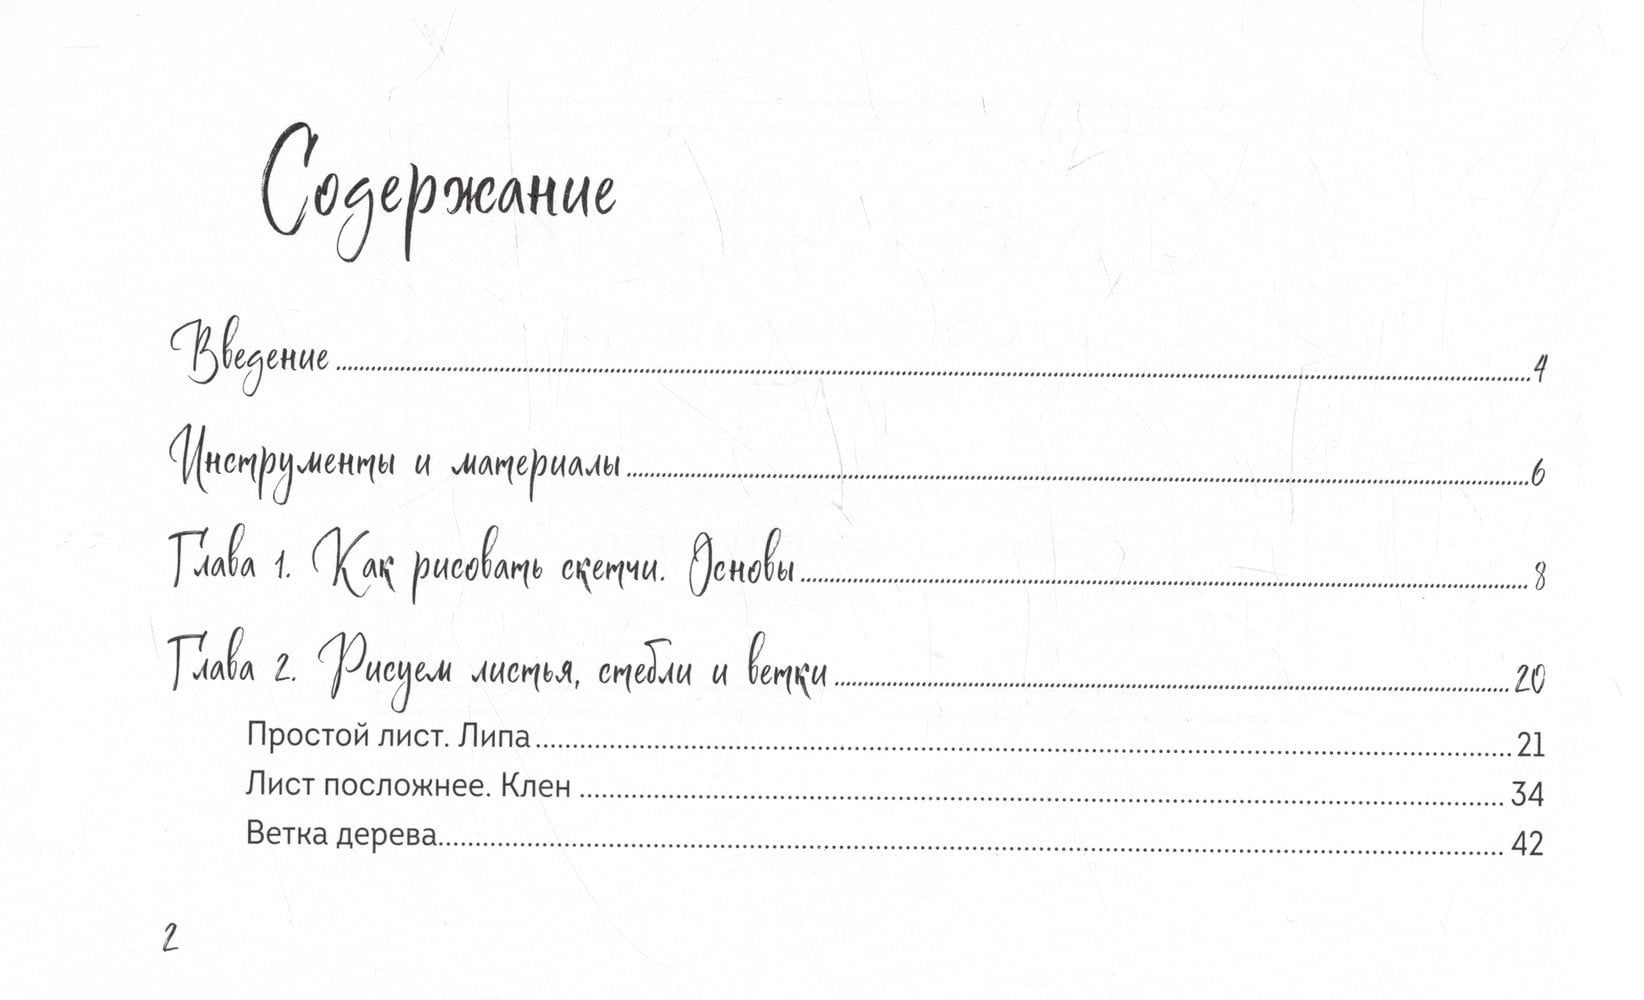 Содержание
Введение........................................4
Инструменты и материалы........................................6
Глава 1. Как рисовать скетчи. Основы........................................8
Глава 2. Рисуем листья, стебли и ветки........................................20
Простой лист. Липа........................................21
Лист посложнее. Клен........................................34
Ветка дерева........................................42
2